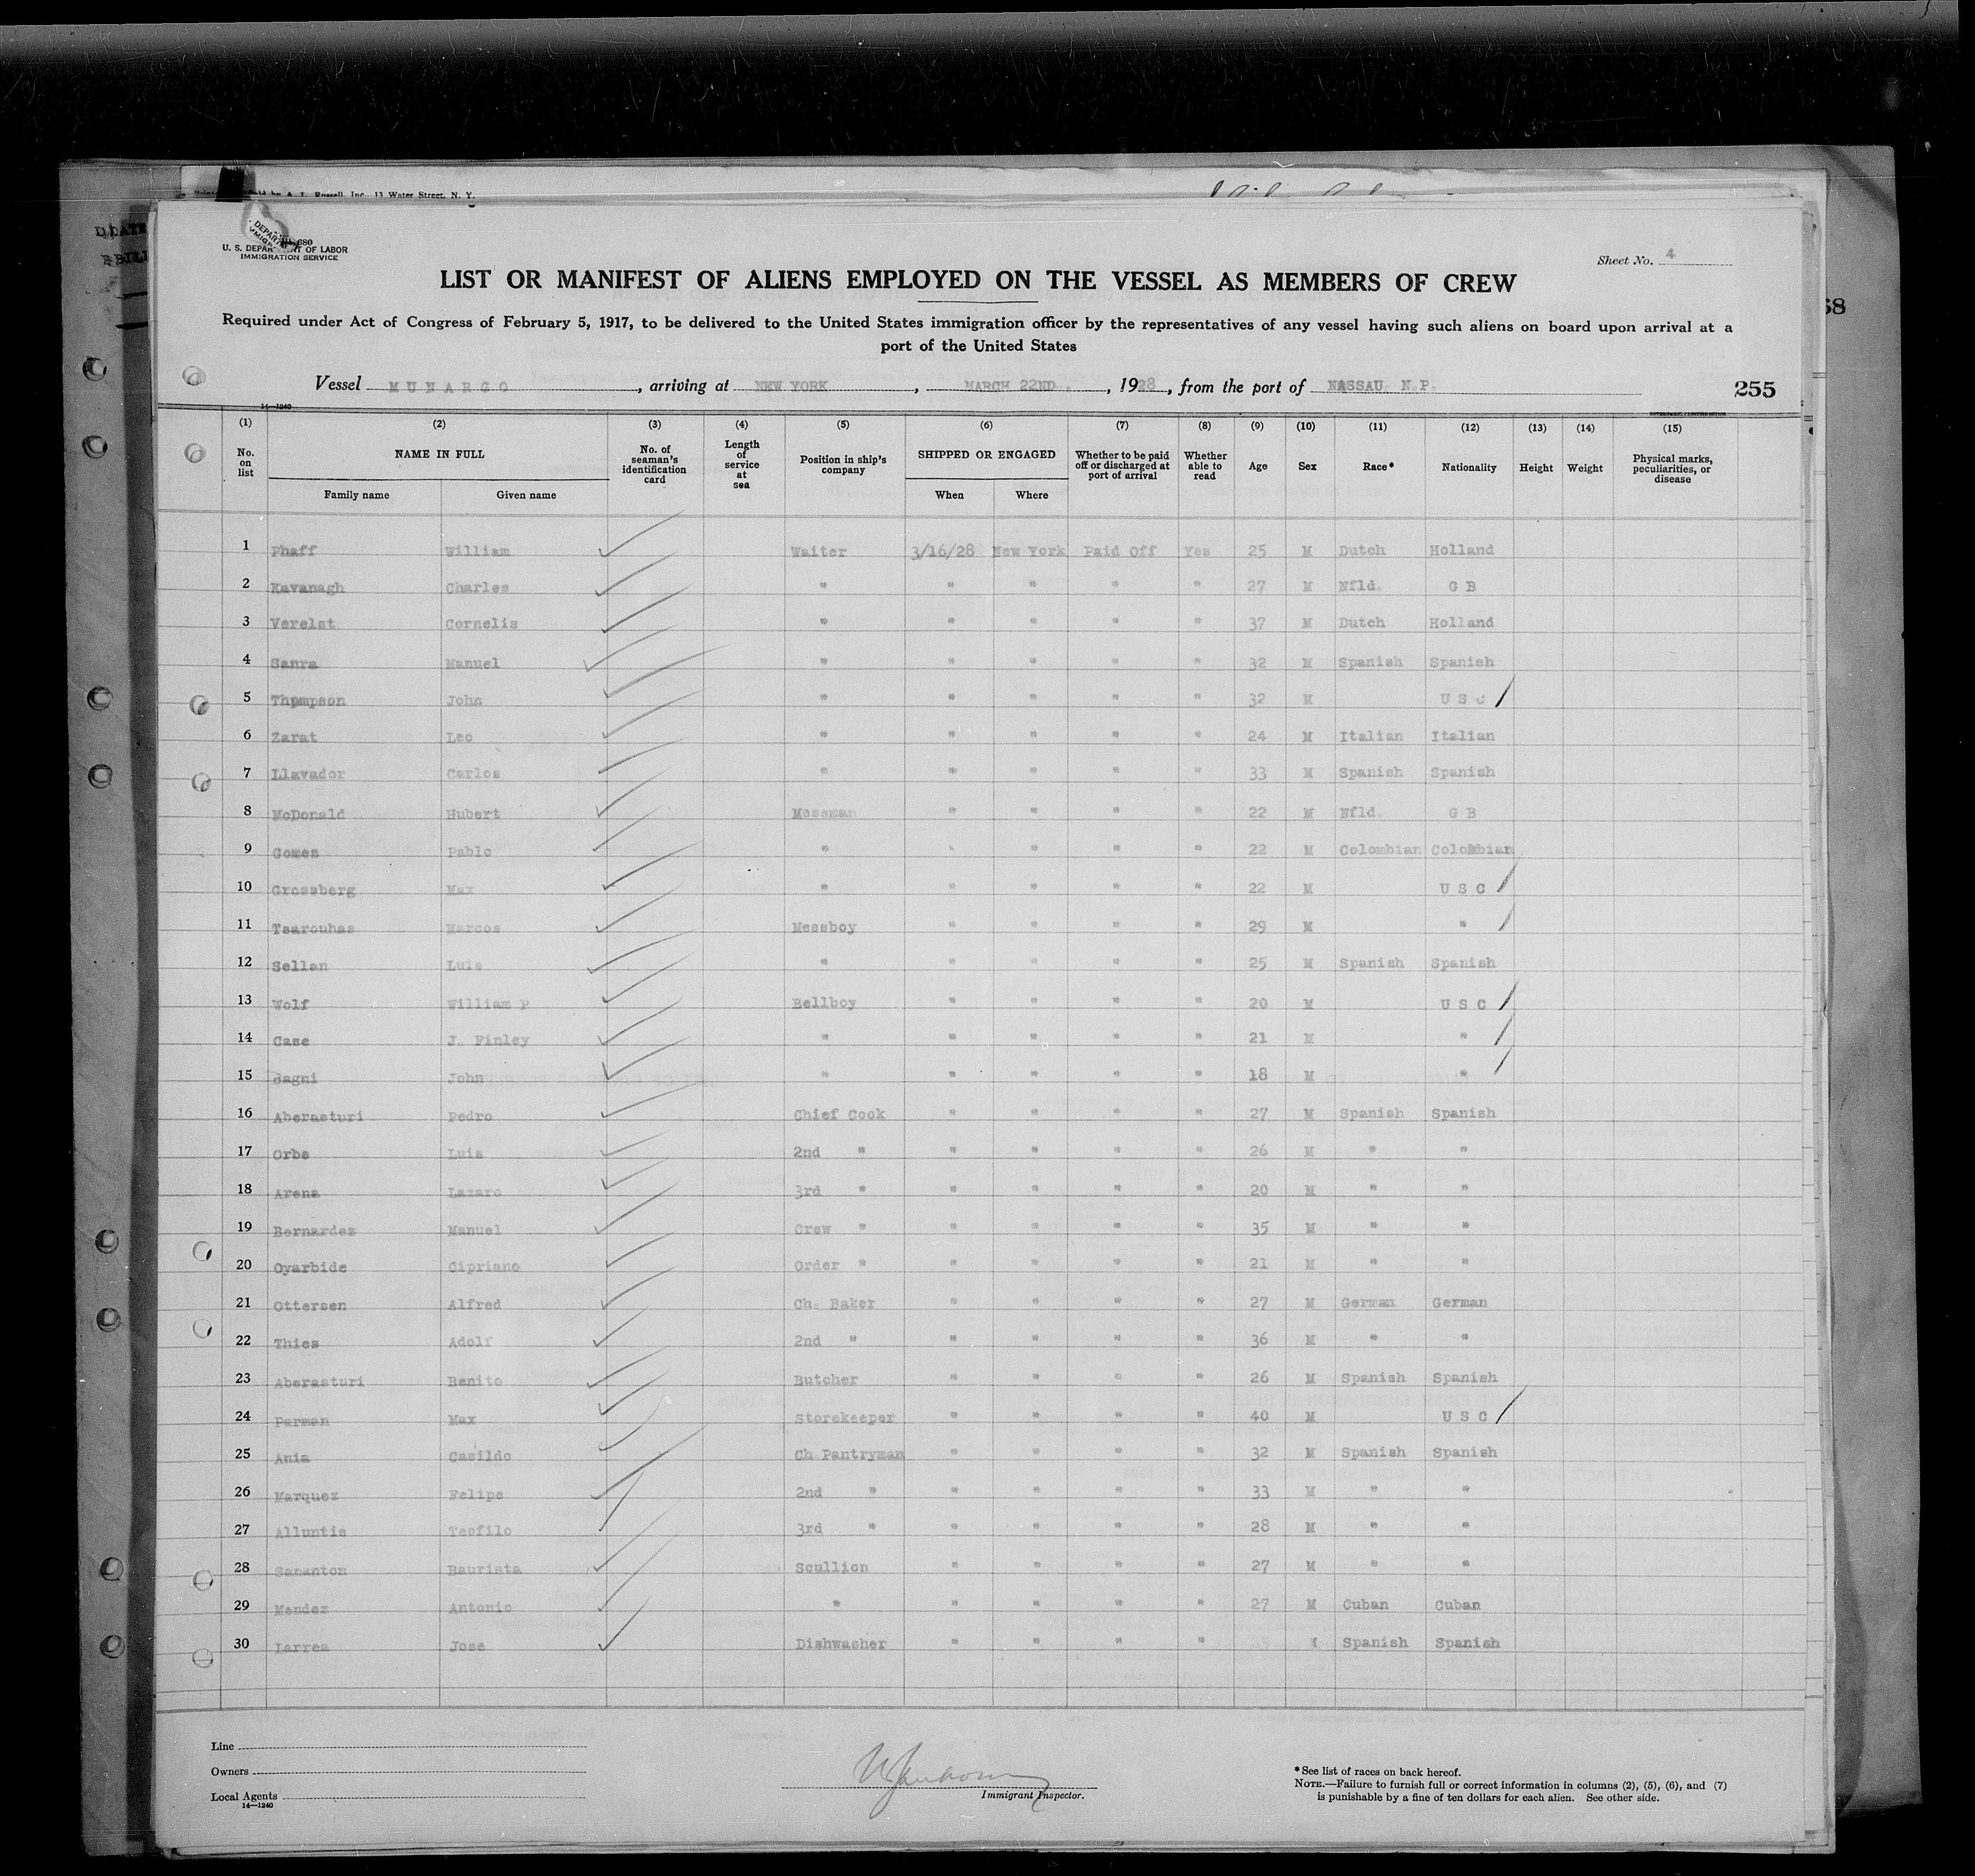 A. L. Russell, Inc., 13 Water Street, N. Y.
680
U. S. DEPARTMENT OF LABOR
IMMIGRATION SERVICE
Sheet No. 4
LIST OR MANIFEST OF ALIENS EMPLOYED ON THE VESSEL AS MEMBERS OF CREW
Required under Act of Congress of February 5, 1917, to be delivered to the United States immigration officer by the representatives of any vessel having such aliens on board upon arrival at a
port of the United States
Vessel MUNARGO, arriving at NEW YORK, MARCH 22ND., 1928, from the port of NASSAU N.P. 255
14—1240
(1) (2) (3) (4) (5) (6) (7) (8) (9) (10) (11) (12) (13) (14) (15)
No. on list NAME IN FULL No. of seaman's identification card Length of service at sea Position in ship's company SHIPPED OR ENGAGED Whether to be paid off or discharged at port of arrival Whether able to read Age Sex Race* Nationality Height Weight Physical marks, peculiarities, or disease
Family name Given name When Where
1 Phaff William Waiter 3/16/28 New York Paid Off Yes 25 M Dutch Holland
2 Kavanagh Charles " " " " " 27 M Nfld. G B
3 Verelst Cornelis " " " " " 37 M Dutch Holland
4 Sanra Manuel " " " " " 32 M Spanish Spanish
5 Thpmpson John " " " " " 32 M U S C
6 Zarat Leo " " " " " 24 M Italian Italian
7 Llavador Carlos " " " " " 33 M Spanish Spanish
8 McDonald Hubert Messman " " " " 22 M Nfld. G B
9 Gomez Pablo " " " " " 22 M Colombian Colombian
10 Grossberg Max " " " " " 22 M U S C
11 Tsarouhas Marcos Messboy " " " " 29 M "
12 Sellan Luis " " " " " 25 M Spanish Spanish
13 Wolf William P Bellboy " " " " 20 M U S C
14 Case J. Finley " " " " " 21 M "
15 Bagni John " " " " " 18 M "
16 Aberasturi Pedro Chief Cook " " " " 27 M Spanish Spanish
17 Orbe Luis 2nd " " " " " 26 M " "
18 Arena Lazaro 3rd " " " " " 20 M " "
19 Bernardez Manuel Crew " " " " " 35 M " "
20 Oyarbide Cipriano Order " " " " " 21 M " "
21 Ottersen Alfred Ch. Baker " " " " 27 M German German
22 Thies Adolf 2nd " " " " " 36 M " "
23 Aberasturi Benito Butcher " " " " 26 M Spanish Spanish
24 Parman Max Storekeeper " " " " 40 M U S C
25 Ania Casildo Ch Pantryman " " " " 32 M Spanish Spanish
26 Marquez Felipe 2nd " " " " " 33 M " "
27 Alluntis Teofilo 3rd " " " " " 28 M " "
28 Sananton Baurista Scullion " " " " 27 M " "
29 Mendez Antonio " " " " " 27 M Cuban Cuban
30 Larrea Jose Dishwasher " " " " Spanish Spanish
Line
Owners
Local Agents
14—1240
Immigrant Inspector.
*See list of races on back hereof.
NOTE.—Failure to furnish full or correct information in columns (2), (5), (6), and (7)
is punishable by a fine of ten dollars for each alien. See other side.